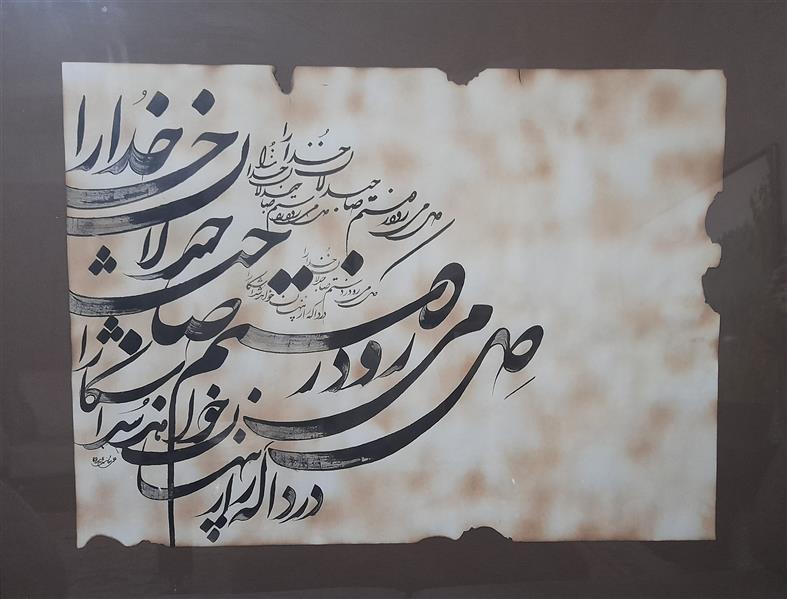 دل می رود ز دستم صاحبدلان خدا را
دردا که راز پنهان خواهد شد آشکارا
دل می رود ز دستم صاحبدلان خدا را
دل می رود ز دستم صاحبدلان خدا را
دل می رود ز دستم صاحبدلان خدا را
دردا که راز پنهان خواهد شد آشکارا